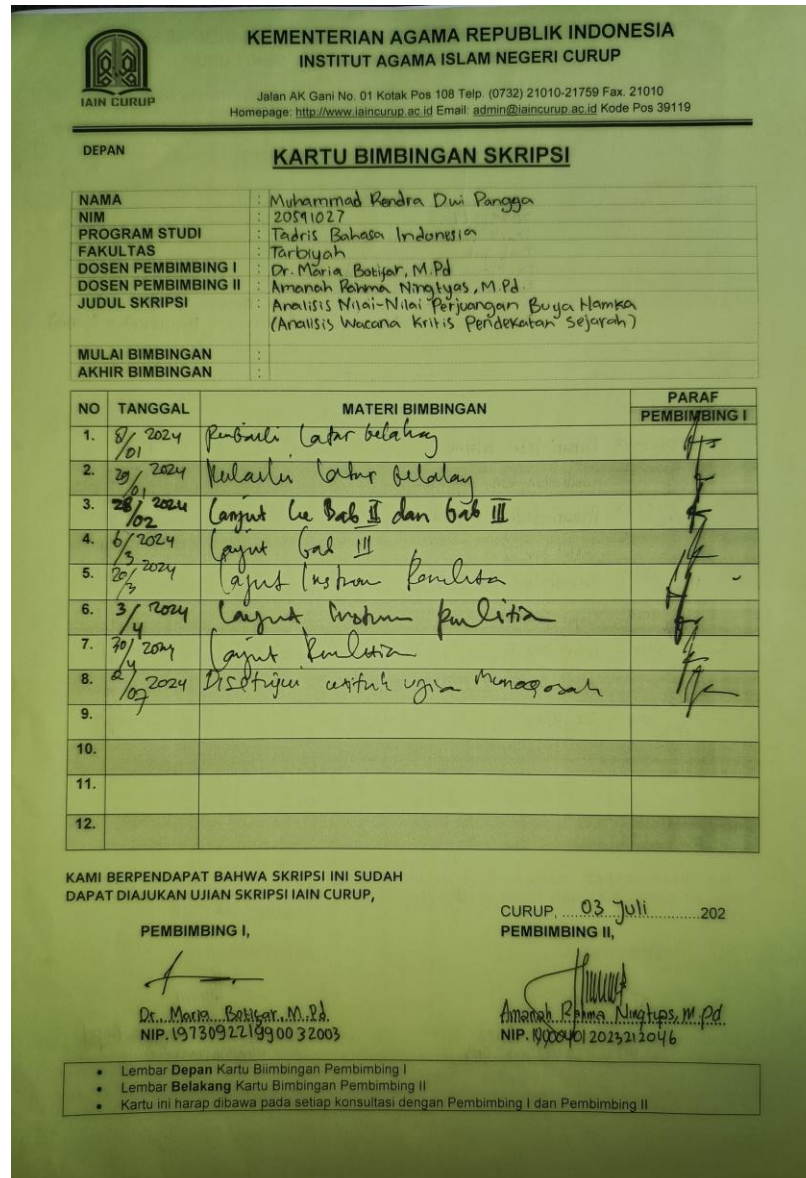 KEMENTERIAN AGAMA REPUBLIK INDONESIA
INSTITUT AGAMA ISLAM NEGERI CURUP
IAIN CURUP
Jalan AK Gani No. 01 Kotak Pos 108 Telp. (0732) 21010-21759 Fax. 21010
Homepage: http://www.iaincurup.ac.id Email: admin@iaincurup.ac.id Kode Pos 39119
DEPAN
KARTU BIMBINGAN SKRIPSI
NAMA : Muhammad Rendra Dwi Pangga
NIM : 20541027
PROGRAM STUDI : Tadris Bahasa Indonesia
FAKULTAS : Tarbiyah
DOSEN PEMBIMBING I : Dr. Maria Botifar, M.Pd
DOSEN PEMBIMBING II : Amanah Rahma Ningtyas, M.Pd.
JUDUL SKRIPSI : Analisis Nilai-Nilai Perjuangan Buya Hamka
(Analisis Wacana Kritis Pendekatan Sejarah)
MULAI BIMBINGAN :
AKHIR BIMBINGAN :
NO TANGGAL MATERI BIMBINGAN PARAF
PEMBIMBING I
1. 8/01 2024 Perbaiki latar belakang
2. 29/01 2024 latar belakang
3. 28/02 2024 Lanjut ke Bab II dan bab III
4. 6/3 2024 Lanjut bab III
5. 20/3 2024 Lanjut Instrumen Penelitian
6. 3/4 2024 Lanjut Instrumen penelitian
7. 30/4 2024 Lanjut Penelitian
8. 2/07 2024 Disetujui untuk ujian Munaqosah
9.
10.
11.
12.
KAMI BERPENDAPAT BAHWA SKRIPSI INI SUDAH
DAPAT DIAJUKAN UJIAN SKRIPSI IAIN CURUP,
CURUP, ..... 03 Juli ..........202
PEMBIMBING I, PEMBIMBING II,
Dr. Maria Botifar, M.Pd. Amanah Rahma Ningtyas, M.Pd
NIP. 197309221999032003 NIP.
• Lembar Depan Kartu Biimbingan Pembimbing I
• Lembar Belakang Kartu Bimbingan Pembimbing II
• Kartu ini harap dibawa pada setiap konsultasi dengan Pembimbing I dan Pembimbing II